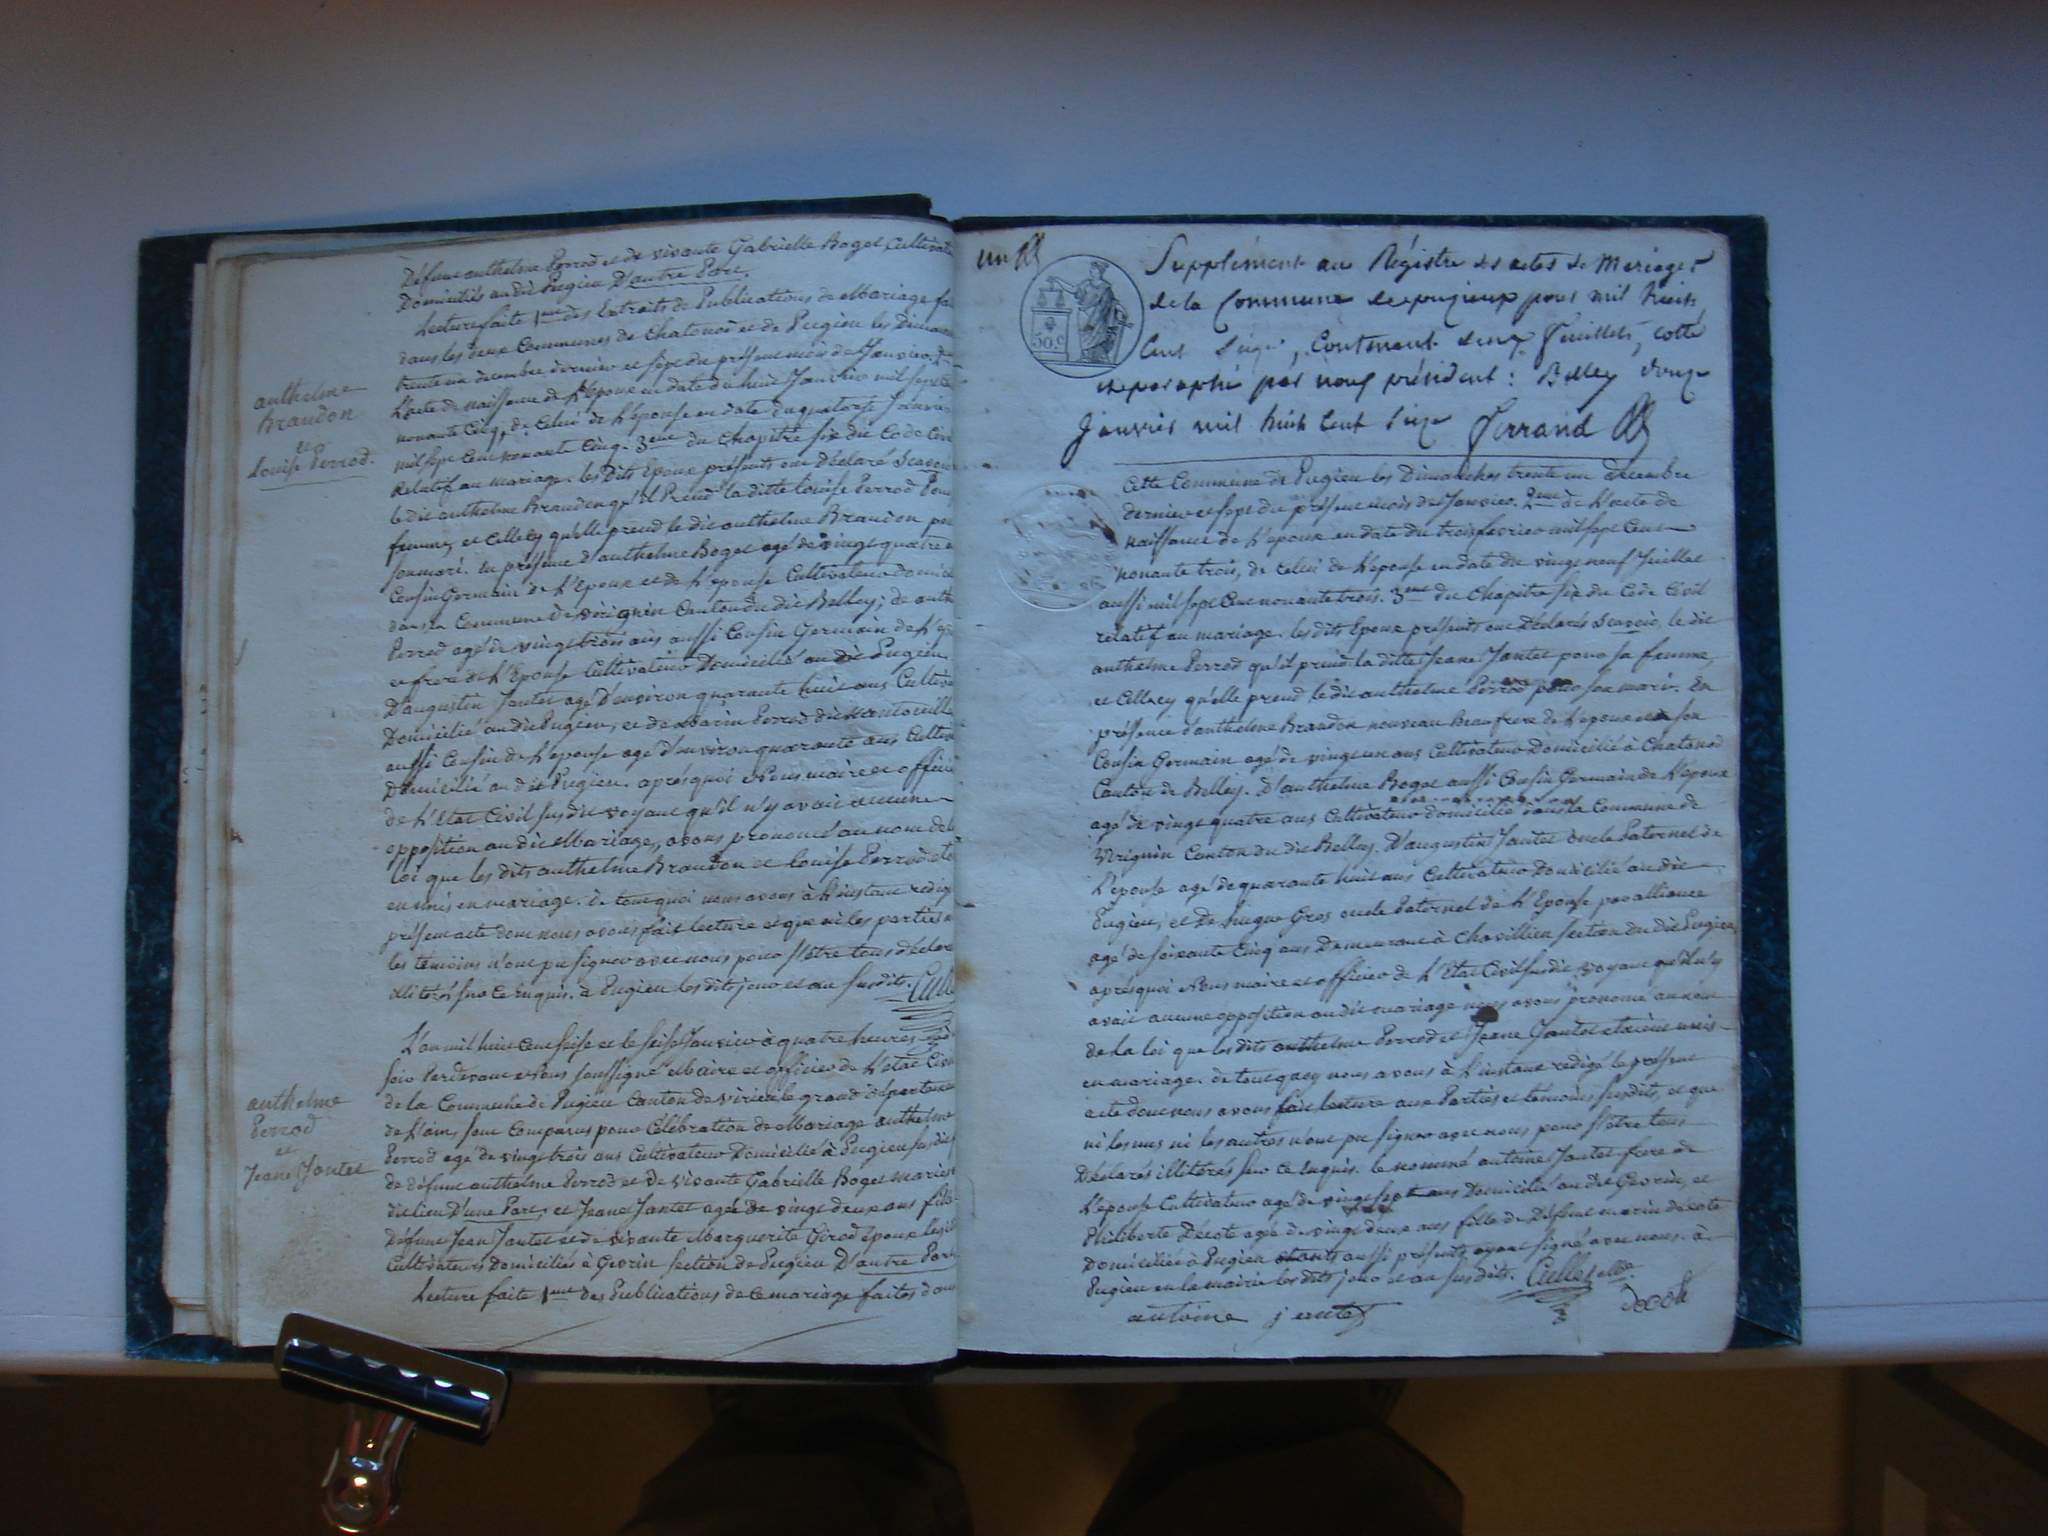 Défunt anthelme Perrod et de vivante Gabrielle Boget Cultivat
Domiciliés au dit Pugieu D'autre Part.
Lecture faite 1mt des Extraits de Publications de Mariage fai
dans les deux Communes de Chatonod et de Pugieu les Dimanc
trente un décembre dernier et sept du présent mois de Janvier
L'acte de Naissance de l'époux en date du huit Janvier mil sept
nonante Cinq, de Celui de l'épouse en date du quatorze Janvier
mil sept Cent nonante Cinq. 3eme du chapitre six du Code Civi
Relatif au mariage. les dits Epoux présents ont Déclaré Scavoir
le dit anthelme Brandon qu'il Prend la ditte Louise Perrod Pour
femme, et Cellecy qu'elle prend le dit anthelme Brandon pour
son mari. En présence d'anthelme Boget agé de vingt quatre
Cousin Germain de l'Epoux et de l'épouse Cultivateur domicil
dans la Commune de virignin Canton du dit Belley; de anth
Perrod agé de vingt trois ans aussi Cousin Germain de l'ep
et frere de l'Epouse Cultivateur Domicilié au dit Pugieu
D'augustin Jantet agé D'environ quarante huit ans Cultiva
Domicilié au dit Pugieu, et de Marin Perrod dit
aussi Cousin de l'épouse agé d'environ quarante ans Cultiv
Domicilié au dit Pugieu. après quoi Nous maire et officie
de l'Etat Civil susdit voyant qu'il n'y avait aucune
opposition au dit Mariage, avons prononcé au nom de la
loi que les dits anthelme Brandon et Louise Perrod etoi
en unis en mariage. de tout quoi nous avons à l'instant rédigé
présent acte dont nous avons fait lecture et que ni les parties ni
les témoins n'ont pu signer avec nous pour s'être tous déclaré
illiterés sur ce Enquis. à Pugieu les dits jour et an susdits. Cull
anthelme
Brandon
et
Louise Perrod.
L'an mil huit Cent seize et le seize Janvier à quatre heures
soir Pardevant Nous soussigné Maire et officier de l'état Civil
de la Commune de Pugieu Canton de virieu le grand département
de l'ain, sont Comparus pour Célébration de Mariage anthelme
Perrod agé de vingt trois ans Cultivateur Domicilié à Pugieu fils
de défunt anthelme Perrod et de vivante Gabrielle Boget mariés
dit lieu D'une Part, et Jeane Jantet agée de vingt deux ans fille
Défunt Jean Jantet et de vivante Marguerite Girod époux legit
Cultivateurs Domiciliés à Gevrin section de Pugieu D'autre Part
Lecture faite 1mt des Publications de ce mariage faites dans
anthelme
Perrod
et
Jeane Jantet
un
50 c
Supplément au Régistre des actes de Mariages
de la Commune de pugieux pour mil huit
Cent Seize, Contenant deux feuillets, cotté
et paraphé par nous président : Belley douze
Janvier mil huit Cent Seize Ferrand
Cette Commune de Pugieu les Dimanches trente un décembre
dernier et sept du présent mois de Janvier. 2eme de l'acte de
naissance de l'époux en date du trois fevrier mil sept Cent
nonante trois, de celui de l'épouse en date du vingt neuf Juillet
aussi mil sept Cent nonante trois. 3eme du Chapitre six du Code Civil
relatif au mariage. les dits Epoux présents ont Déclarés Scavoir, le dit
anthelme Perrod qu'il prend la ditte Jeane Jantet pour sa femme,
et Cellecy qu'elle prend le dit anthelme Perrod pour son mari. En
présence d'anthelme Brandon nouveau Beaufrere de l'époux et son
Cousin Germain agé de vingt un ans Cultivateur Domicilié à Chatonod
Canton de Belley. D'anthelme Boget aussi Cousin Germain de l'époux
agé de vingt quatre ans Cultivateur domicilié dans la Commune de
Virignin Canton du dit Belley. D'augustin Jantet oncle Paternel de
L'épouse agé de quarante huit ans Cultivateur Domicilié au dit
Pugieu, et de hugue Gros oncle Paternel de l'Epouse par alliance
agé de soixante Cinq ans Demeurant à Chavillieu section du dit Pugieu,
après quoi Nous maire et officier de l'Etat Civil susdit voyant qu'il n'y
avait aucune opposition au dit mariage nous avons prononcé au nom
de la loi que les dits anthelme Perrod et Jeane Jantet etoient unis
en mariage. de tout quoy nous avons à l'instant redigé le présent
acte dont nous avons fait lecture aux Parties et témoins susdits, et que
ni les uns ni les autres n'ont pu signer avec nous pour s'être tous
Déclarés illiterés sur ce Enquis. le nommé antoine Jantet frere de
l'épouse Cultivateur agé de vingt sept ans Domicilié au dit Gevrin, et
Philiberte Décote agée de vingt deux ans fille de Défunt marin décote
domiciliée à Pugieu etants aussi présents ayant signé avec nous. à
Pugieu en la mairie les dits jour et an susdits. Cullet Mre
antoine jantet